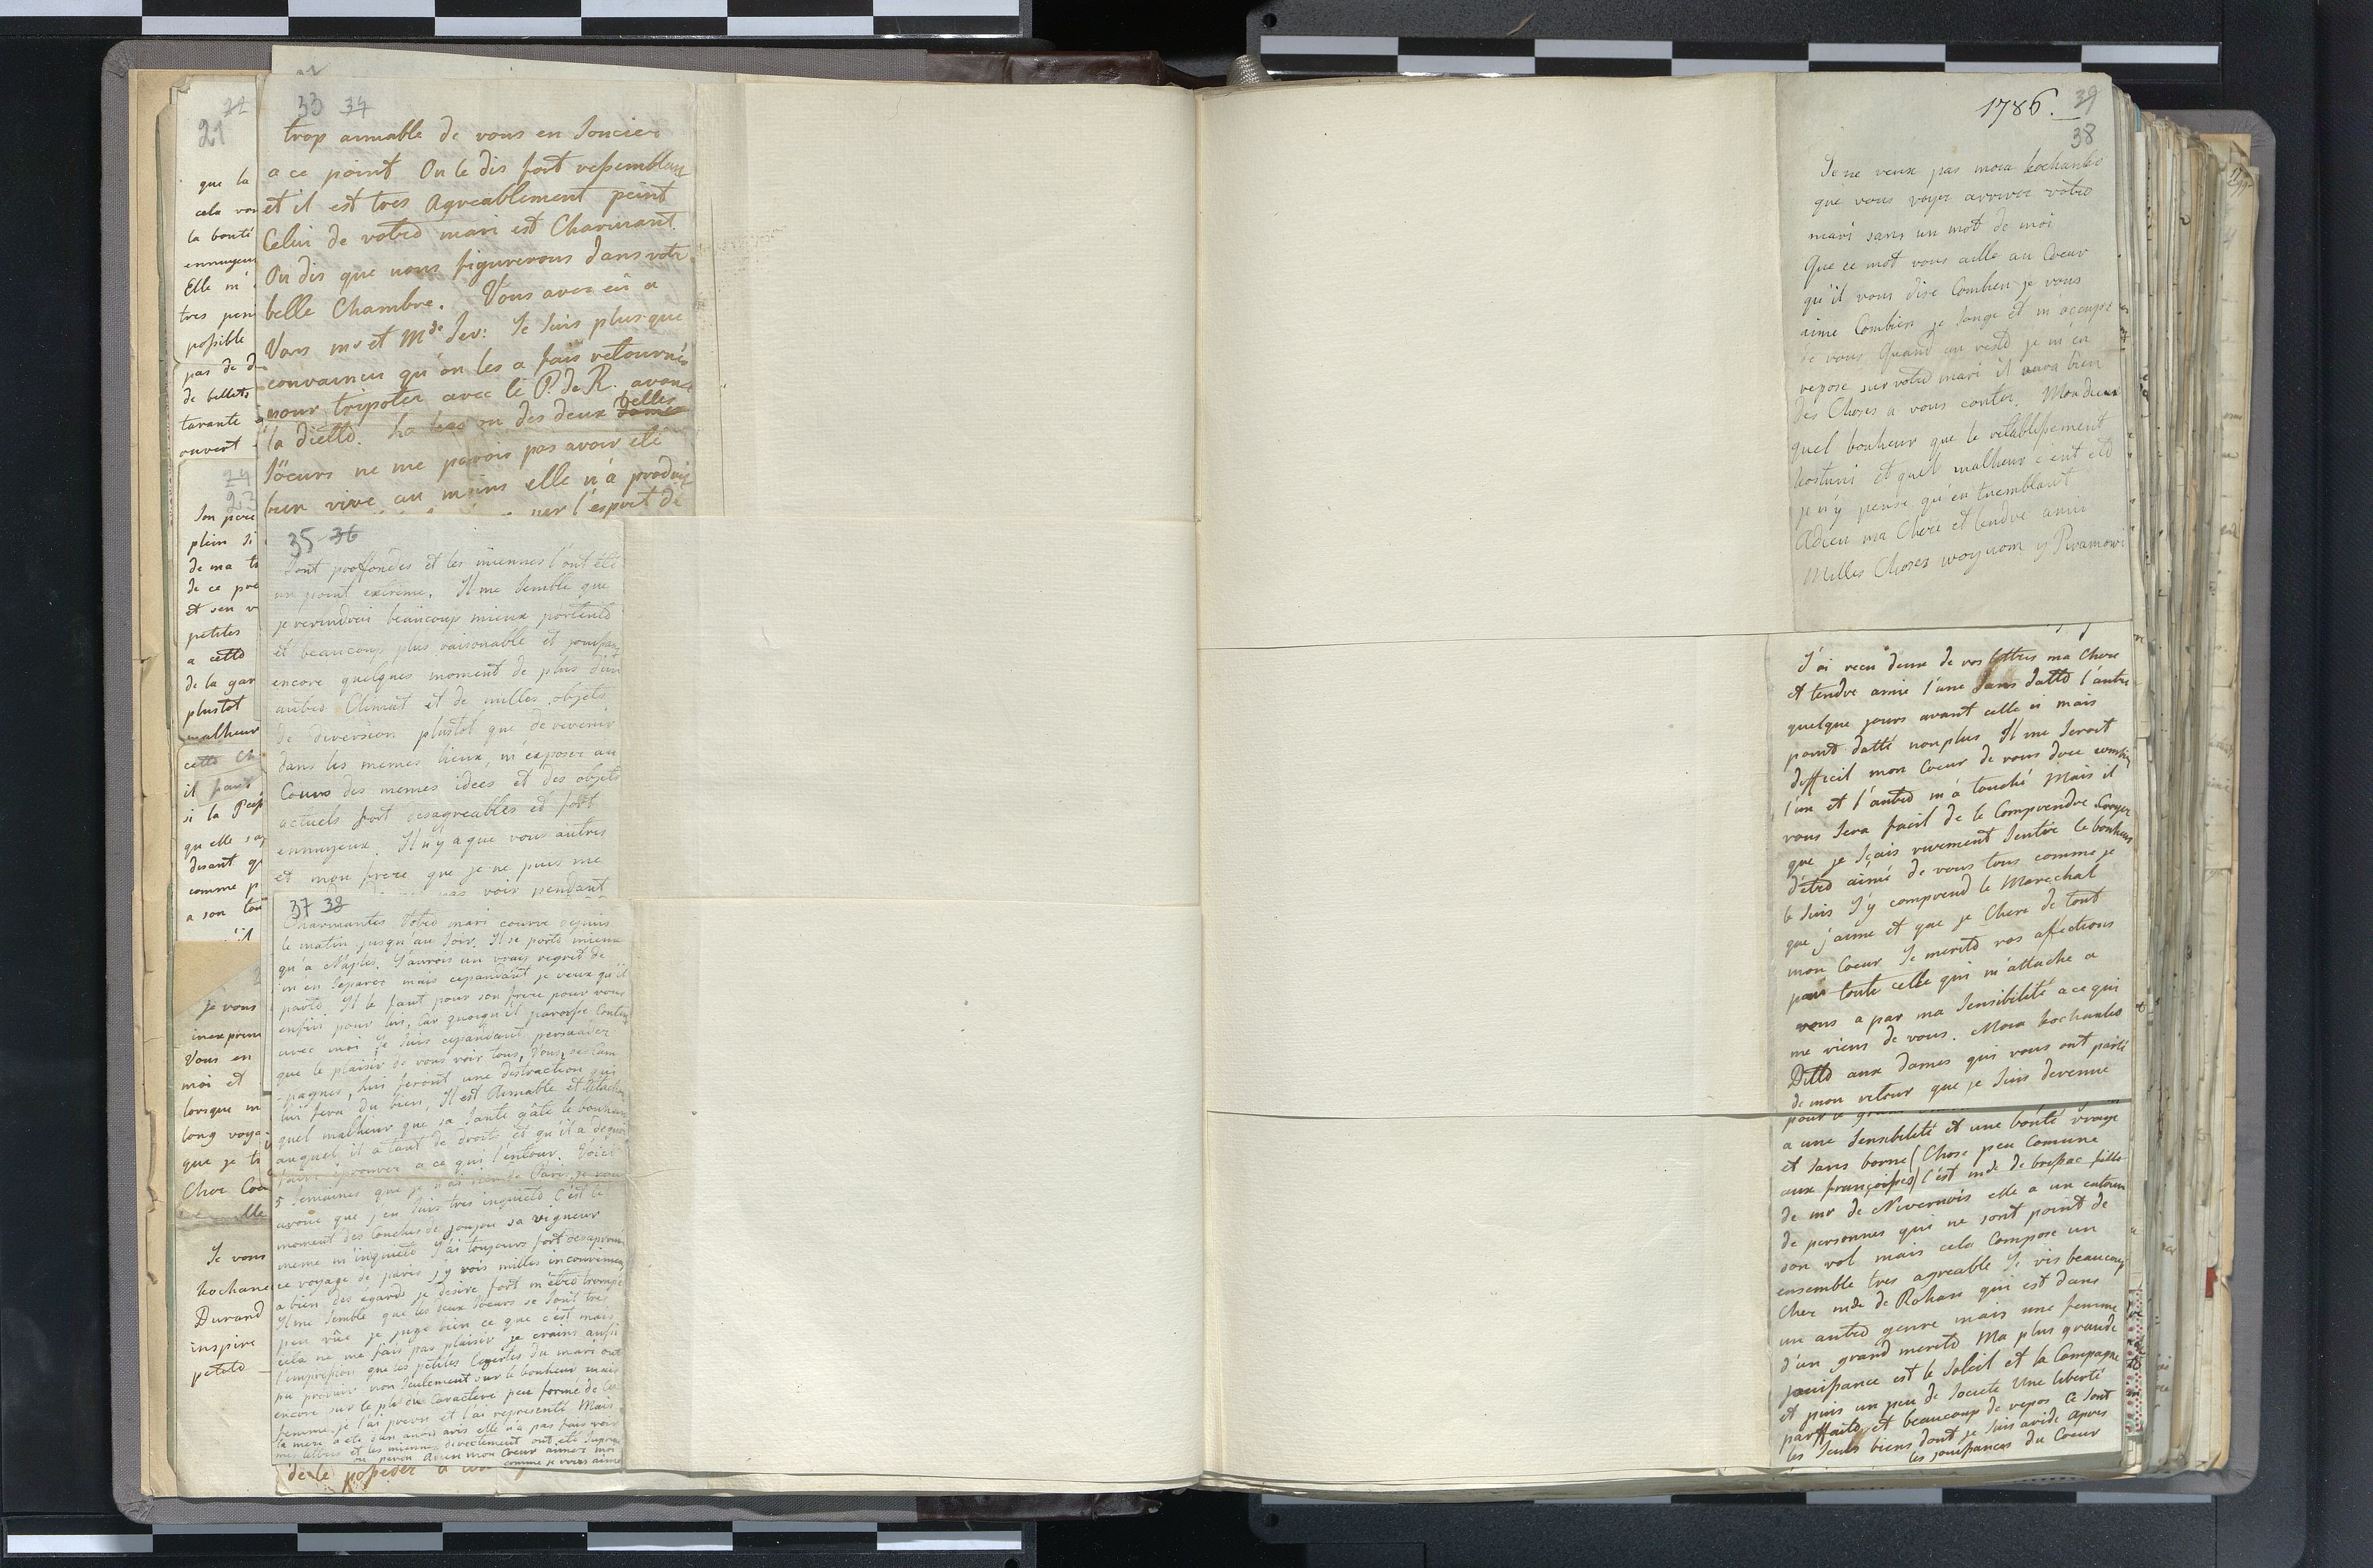 22
21
que la
cela vou
la bonté
ennuyeu
Elle m'
tres pen
possible
pas de d
de billets
tarante
ouvert
24
23
Son pere
plein si
de ma
de ce pre
et son v
petites
a cette
de la gar
plustot
malheur
cette Ch
il faut
si la
qu'elle
disant q
comme p
a son tou
je vous
inexprim
Vous en
moi et
lorsque m
long voya
que je
Cher Coeu
Je vous
kochane
Durand
inspire
petite
33 34
trop aimable de vous en soucier
a ce point On le dis fort ressemblan
et il est tres Agreablement peint
Celui de votre mari est Charmant
On dis que nous figurerons dans votr
belle Chambre. Vous avez eü a
Vars mr et Mde Sev: Je suis plus que
convaincu qu'on les a fais retourné
pour tripoter avec le P. de R. avant
la diette. La des deux Belles
Soeurs ne me parois pas avoir eté
bien vive au moins elle n'a produi
sur l'esprit de
35 36
Sont proffondes et les miennes l'ont été
un point extrême. Il me semble que
je reviendrai beaucoup mieux portente
et beaucoup plus raisonable et jouissan
encore quelques moment de plus d'un
autre Climat et de milles objets
de diversion plustot que de revenir
dans les memes lieux, m'exposer au
Cours des memes idees et des objets
actuels fort desagreables et fort
ennuyeux. Il n'y a que vous autres
et mon frere que je ne puis me
pas voir pendant
37 38
Charmantes Votre mari courre depuis
le matin jusqu'au soir. Il se porte mieux
qu'a Naples. J'aurois un vrais regret de
m'en separer mais cependant je veux qu'il
parte Il le faut pour son frere pour vous
enfin pour lui, Car quoiqu'il paroisse Conten
avec moi je suis cependant persuadee
que le plaisir de vous voir tous, Vous, sa Cam
pagne, lui feront une distraction qui
lui fera du bien, Il est Aimable et
quel malheur que sa santé gâte le bonheur
auquel il a tant de droits et qu'il a
faire eprouver a ce qui l'entour. Voici
5 Semaines que je n'ai rien de Paris je vous
avoue que j'en suis tres inquiete C'est le
moment des Couches de joujou sa vigueur
meme m'inquiete J'ai toujours fort desaprouvé
ce voyage de paris j'y vois milles inconvenien
a bien des égards je desire fort m'être trompé
Il me semble que les deux Soeurs se sont tres
peu vüe je juge bien ce que c'est mais
cela ne me fais pas plaisir je crains aussi
l'impression que les petites du mari ont
pu produir non seulement sur le bonheur mais
encore sur le pli du Caractere peu formé de
femme je l'ai prevu et l'ai representé Mais
la mere a eté d'un autre avis elle n'a pas fais voir
mes lettres et les miennes directement ont eté
Adieu mon Coeur aimez moi
comme je vous aime
de le posseder a
1786. 39
38
Je ne veux pas moia kochanko
que vous voyez arriver votre
mari sans un mot de moi
Que ce mot vous aille au Coeur
qu'il vous dise Combien je vous
aime Combien je songe et m'occupe
de vous Quand au reste je m'en
repose sur votre mari il aura bien
des Choses a vous conter. Mon dieu
quel bonheur que le retablissement
kostusi et quel malheur c'eut eté
je n'y pense qu'en tremblant
Adieu ma Chere et tendre amie
Milles Choses woynom y Piramowi
J'ai recu deux de vos lettres ma Chere
et tendre amie l'une sans datte l'autre
quelque jours avant celle ci mais
point datté non plus Il me seroit
difficil mon Coeur de vous dire combien
l'un et l'autre m'a touché Mais il
vous sera facil de le Comprendre Croyez
que je sçais vivement sentir le bonheur
d'être aimé de vous tous comme je
le suis J'y comprend le Marechal
que j'aime et que je Chere de tout
mon Coeur Je merite vos afections
par toute celle qui m'attache a
vous a par ma sensibilité a ce qui
me viens de vous. Moia kochanko
Ditto aux dames qui vous ont parlé
de mon retour que je suis devenue
a une sensibilité et une bonté vraye
et sans borne (Chose peu Comune
aux françoises) C'est mde de brissac fille
de mr de Nivernois elle a un entour
de personnes qui ne sont point de
son vol mais cela Compose un
ensemble tres agreable Je vis beaucoup
Cher mde de Rohan qui est dans
un autre genre mais une femme
d'un grand merite Ma plus grande
jouissance est le Soleil et la Campagne
et puis un peu de Societe Une liberté
parffaite et beaucoup de repos Ce sont
les seuls biens dont je suis avide Apres
les jouissances du Coeur